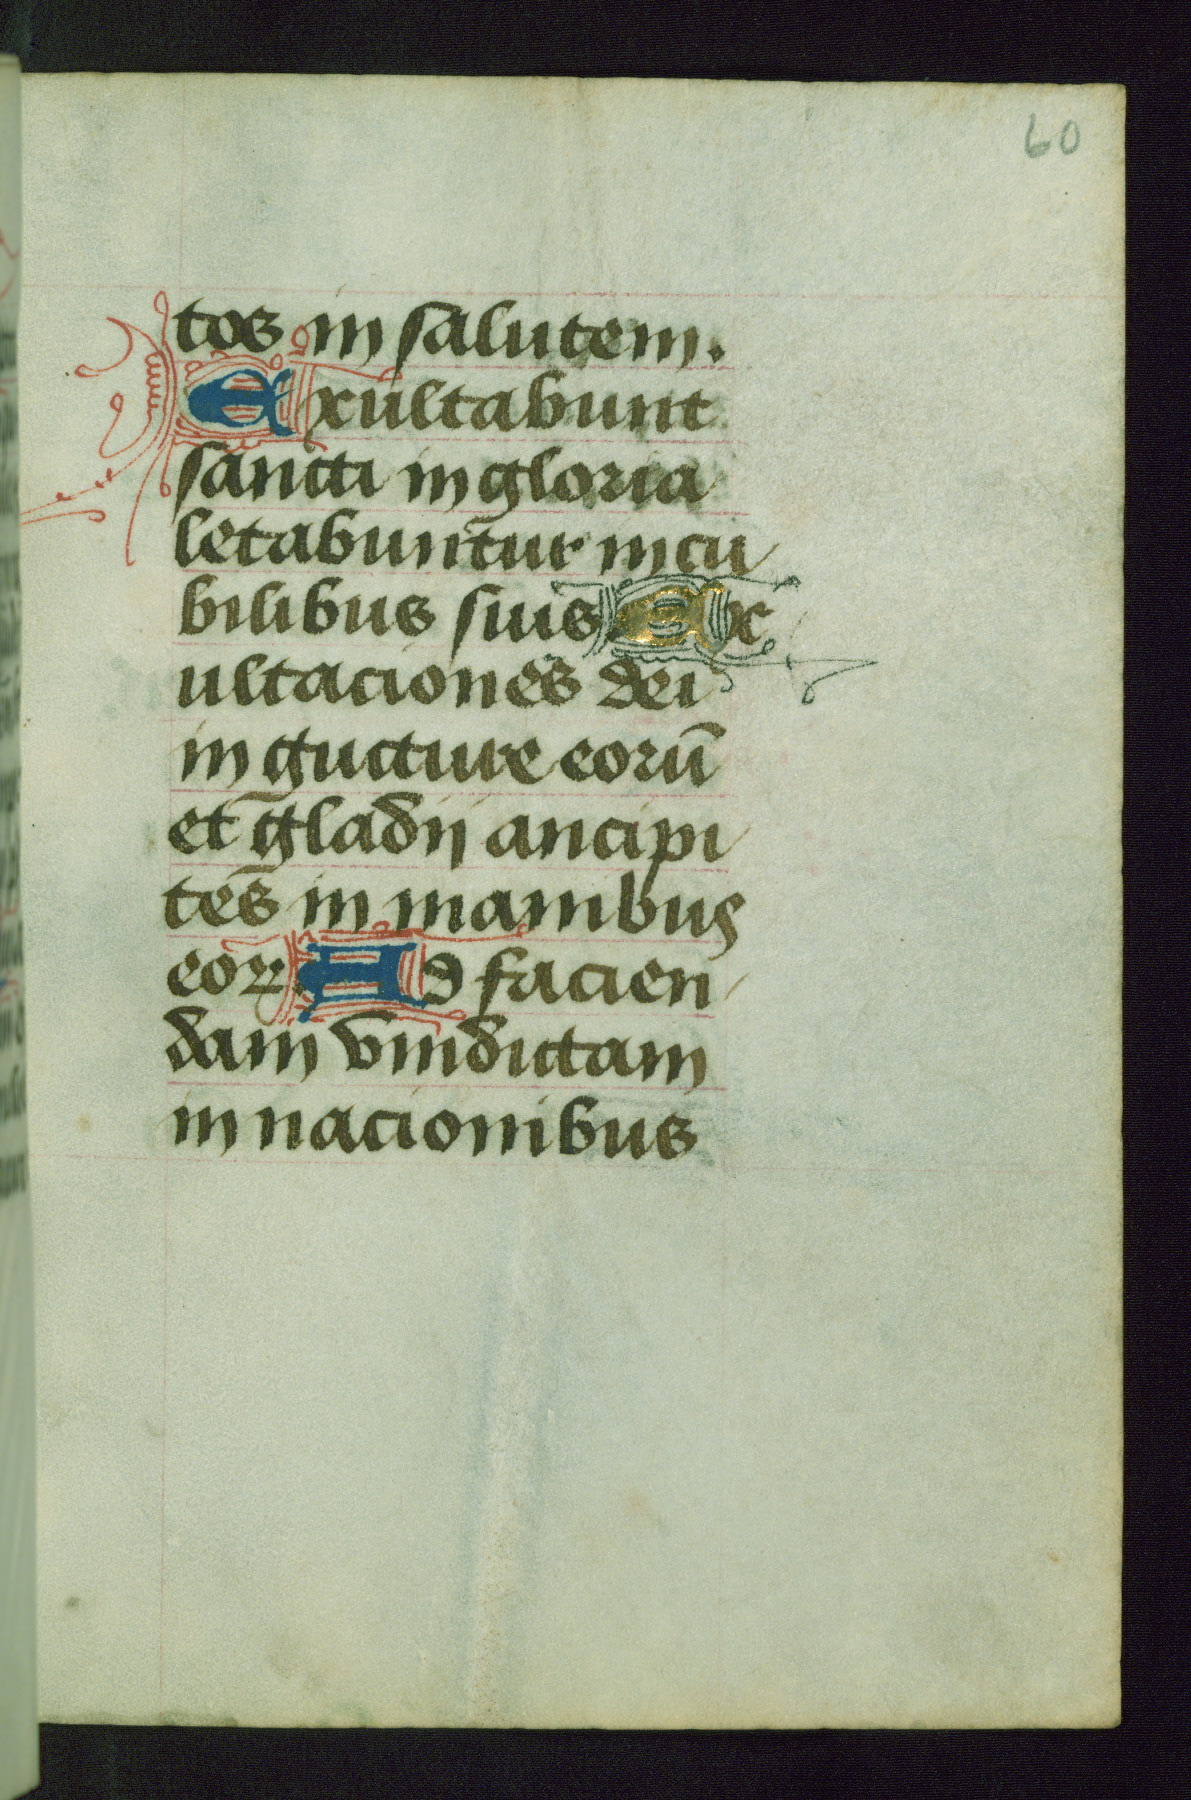 60
tos in salutem.
Exultabunt
sancti in gloria
letabuntur in cu
bilibus suis. Ex
ultaciones dei
in gutture eorū
et gladii ancipi
tes in manibus
eoꝝ. Ad facien
dam vindictam
in nacionibus